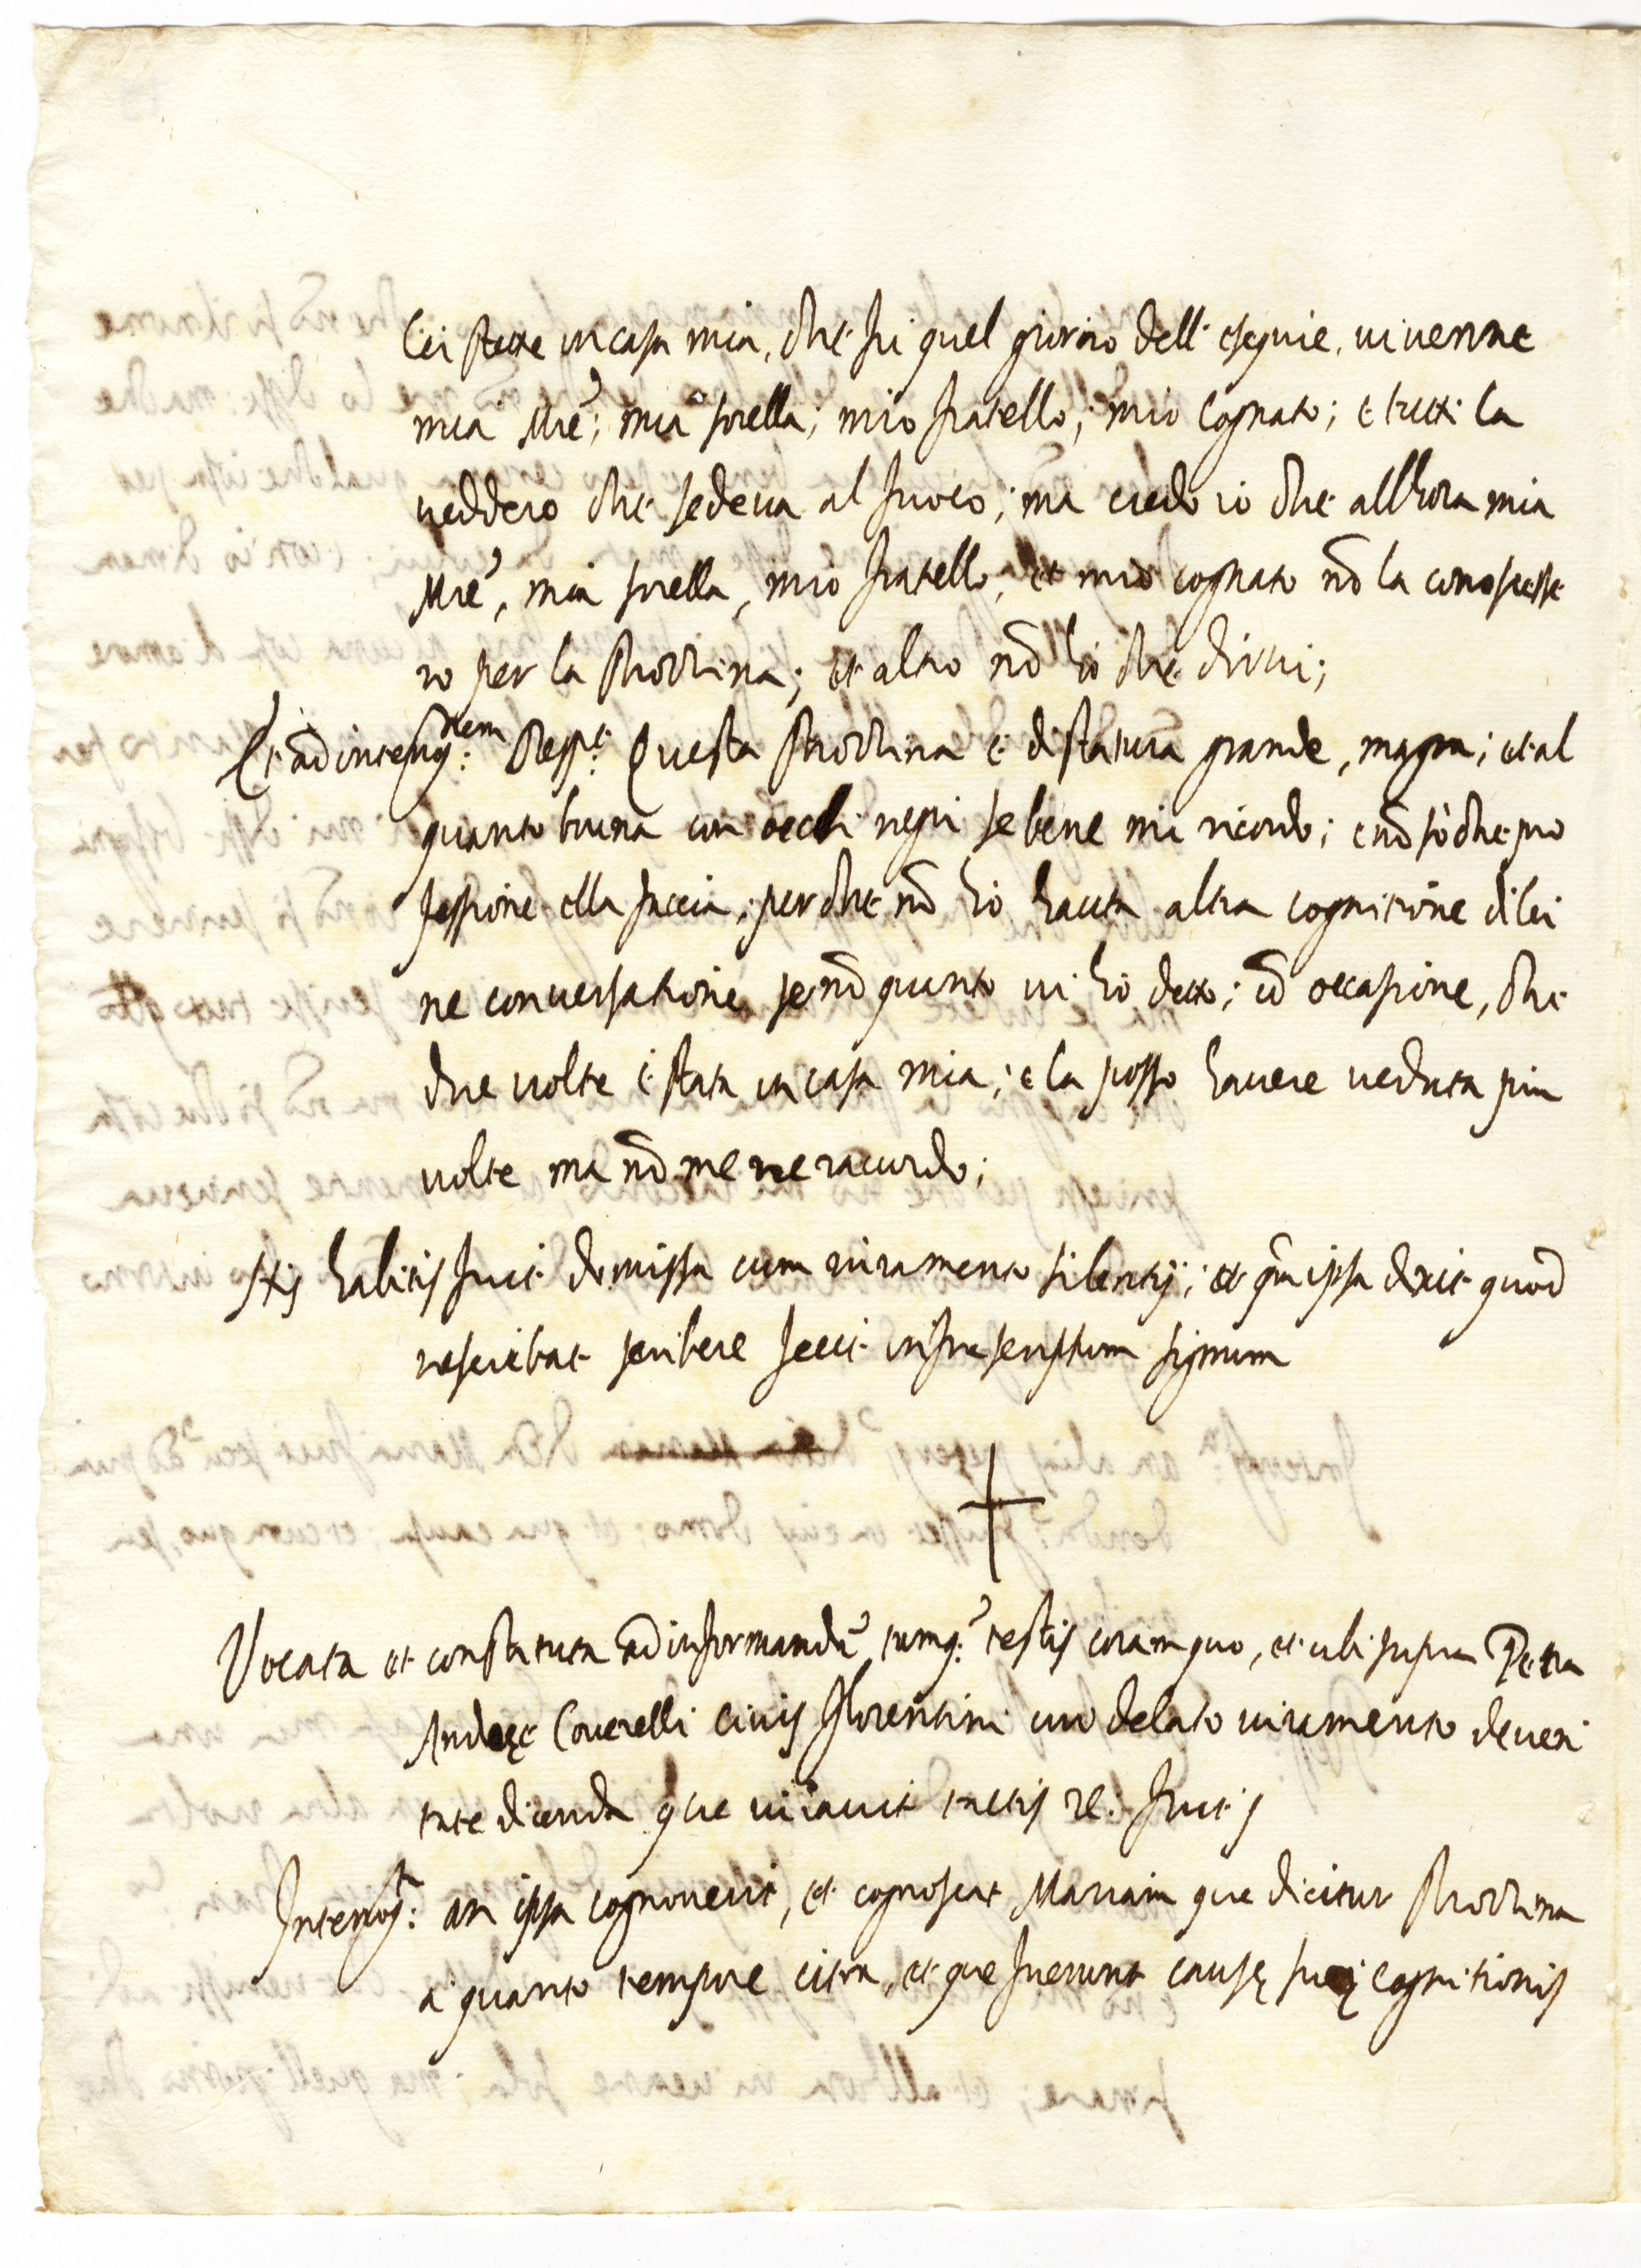 lei stette in casa mia, che fu quel giorno dell' esequie, vi venne
mia Mrē; mia sorella; mio fratello; mio Cognato; e tutti la
veddero che sedeva al fuoco; ma credo io che all'hora mia
Mrē, mia sorella, mio fratello, et mio cognato nō la conoscesse
ro per la Strozzina; et altro nō hò che dirvi;
Et ad interrog:nem Resp:t Questa Strozzina è di statura grande, magra; et al
quanto bruna con occhi negri se bene mi ricordo; e nō sò che pro
fessione ella faccia; perche nō hò hauta altra cognitione di lei
ne conversatione se nō quanto vi hò detto; cō occasione, che
due volte è stata in casa mia; e la posso havere veduta piu
volte ma nō me ne racordo;
Htis habitis fuit dimissa cum iuramento silentij; et qm̄ ipsa dixit quod
nesciebat scribere fecit infrascriptum signum
+
Vocata et constituta ad informandū tamq:̄ testis coram quo, et ubi supra Petra
Andreę Coverelli Civis Florentini cui delato iuramento de veri
tate dicenda que iuravit tactis
Interrog:ta an ipsa cognoverit, et cognoscat Mariam que dicitur Strozzina
a quanto tempore citra, et que fuerunt causę suę cognitionis